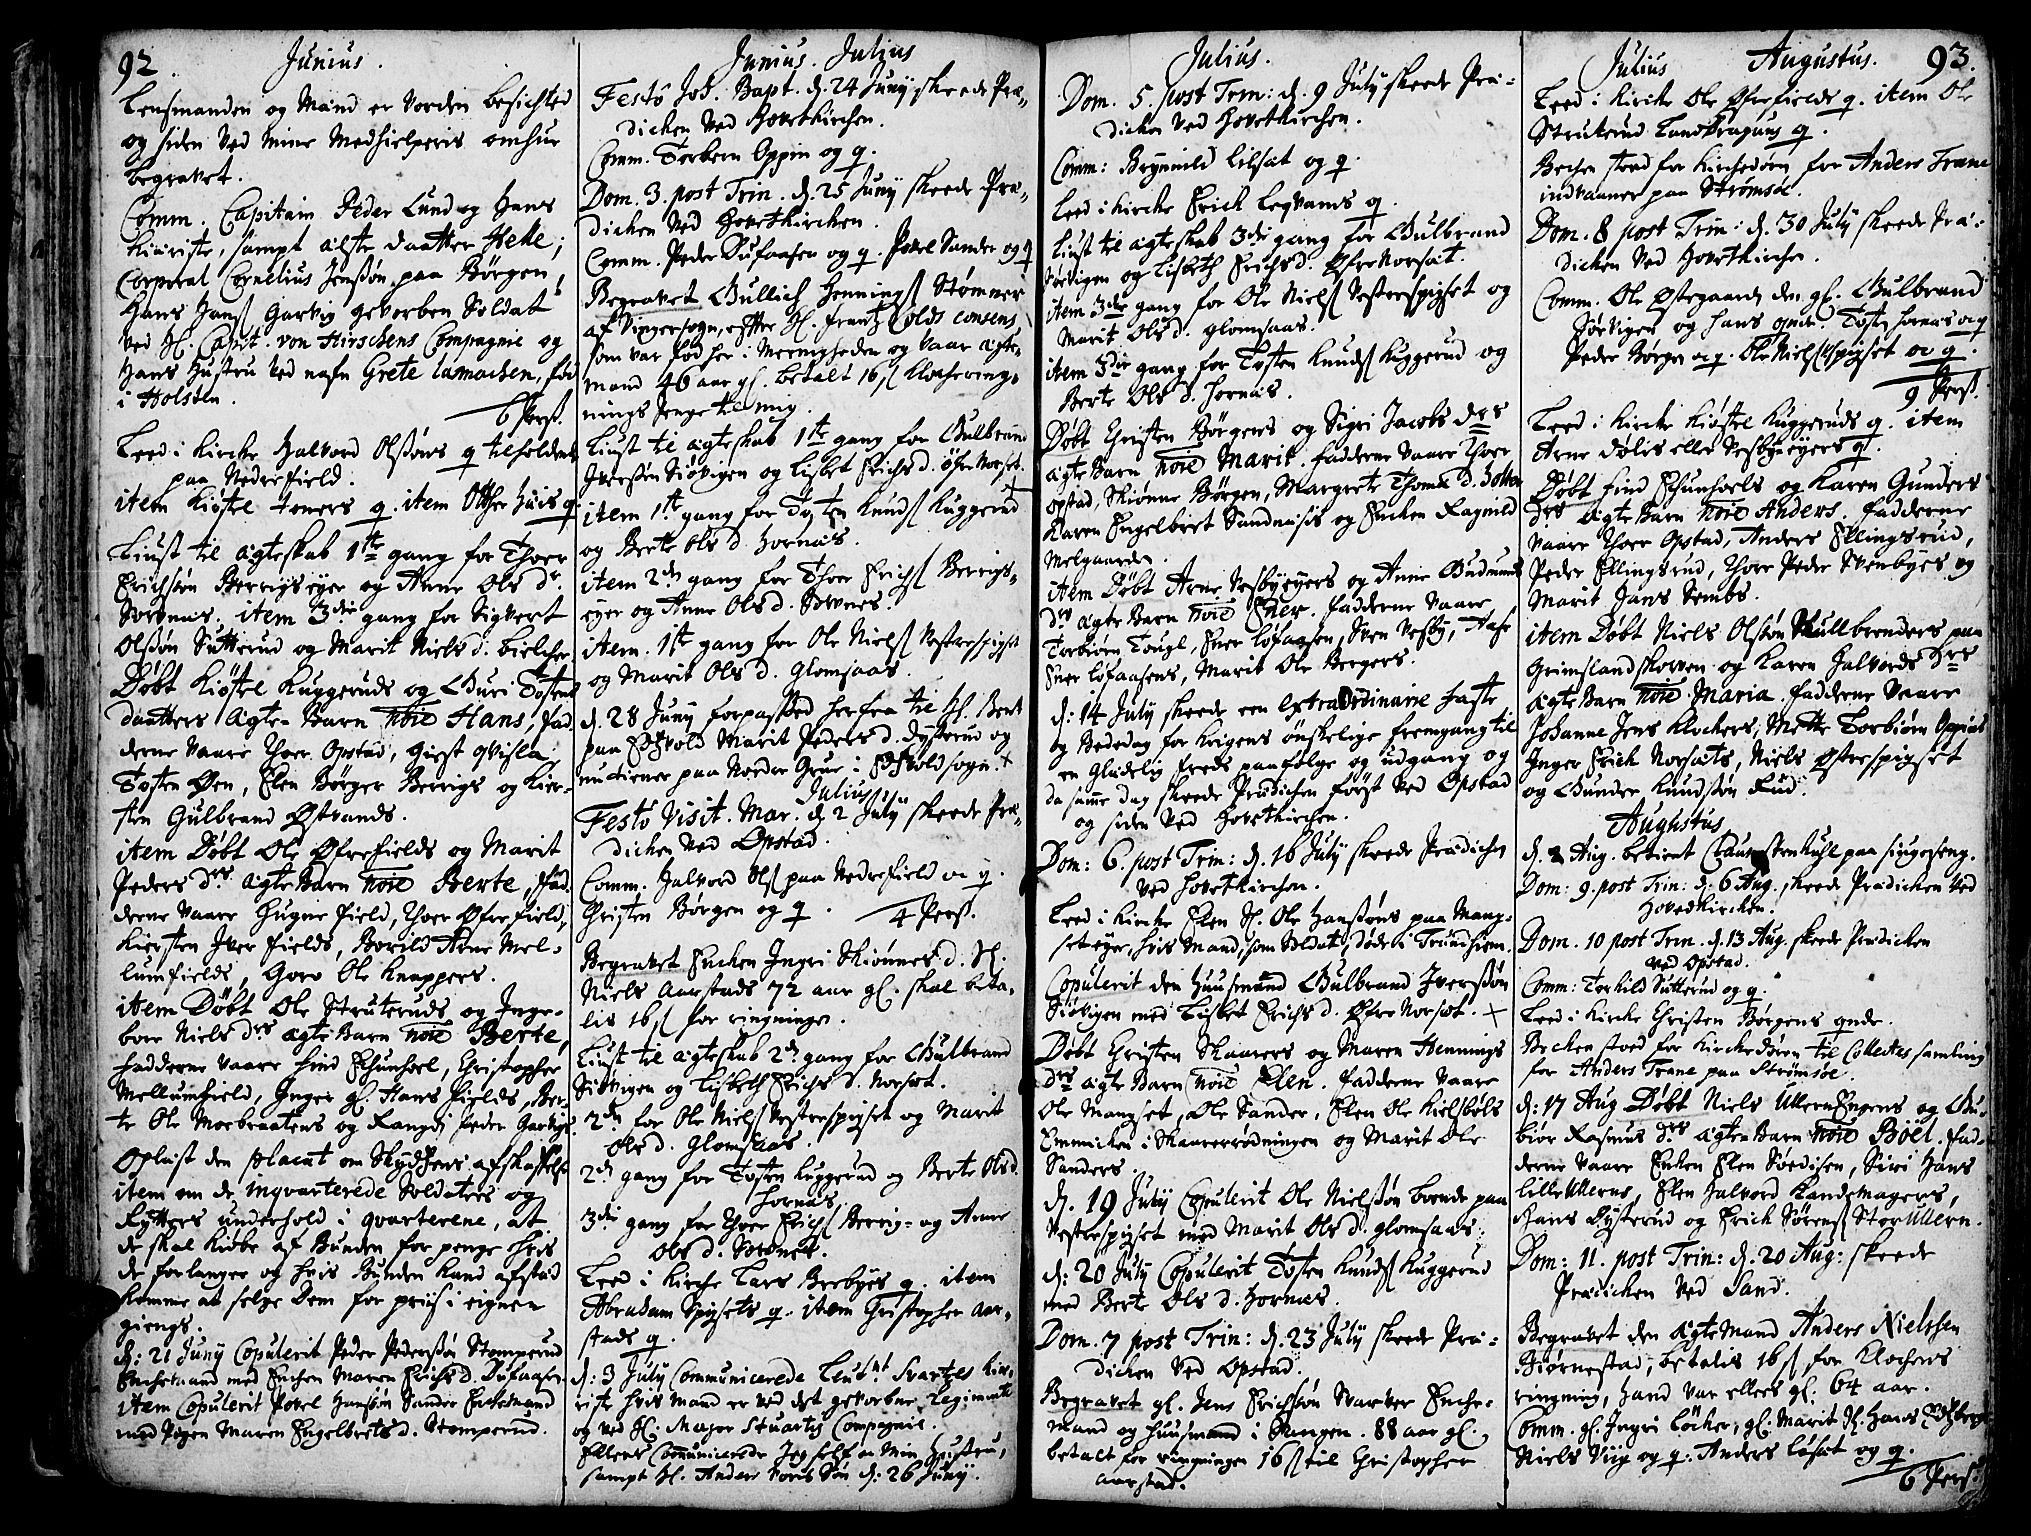 92
Junius.
Lensmanden og Mand er vorden besichted
og siden ved mine Medhielperis omhue
begravet.
Comm. Capitain Peder Lund og Hans
kiæriste, sampt ælste daatter Helle;
Corporal Cornelius Jenssøn paa Børgen,
Hans Hans Garvig gevorben Soldat
ved H. Capit. von Hirschens Compagnie og
Hans Hustru ved nafn Grete Lamachen, fød
i Holsten.
6 Pers.
Leed i Kirche Halvord Olssøns q tilholdende
paa Nedrefield.
item Kiøstel toners q. item Otther Huus q
Liust til ægteskab 1ste gang for Thoer
Erichssøn Berrigseyer og Anne Ols dr
Sornes. item 3die gang for Sigvert
Olssøn Sutterud og Marit Niels d. bielcher
Døbt Kiøstel Kuggeruds og Guri Tostens
daatters ægte Barn noie Hans, fad-
derne vaare Thoer Opstad, giest Qvisla,
Tosten Øen, Elen Børger Berrigs og Kier-
sten Gulbrand Østvands.
item Døbt Ole Øfrefields og Marit
Peders drs ægte Barn noie Berte, fad-
derne vaare Hugne field, Thoer Øfrefield,
Kiersten Iver fields, Borild Arne Mel-
lumfields, Goro Ole Knappers.
item Døbt Ole Struteruds og Inge-
bor Niels drs ægte Barn noie Berte,
fadderne vaare find Ehunhoel, Christopher
Mellumfield, Inger gl. Hans fields, Ber-
te Ole Moebraatens og Rangdi Peder Garvigs.
Oplæst den placat om Skydsens afskaffelse
item om de inqvarterede Soldaters og
Rytters underhold i qvarterene, at
de skal kiøbe af Bunden for penge hvis
de forlanger og hvis Bunden kand afstad
komme at selge dem for priis i eignen
giengs.
d: 21 Juny Copulerit Peder Pederssøn Stomperud
Enchemand med Enchen Maren Erichs d. Dufaasen.
item Copulerit Povel Hanssøn Sander Enchemand
med Pigen Maren Engelbrets d. Stomperud.
Junius. Julius
Festo Joh. Bapt. d. 24 Juny skeede Præ-
dichen ved Hovetkirchen.
Comm. Torbern Oppin og q.
Dom. 3. post Trin. d. 25 Juny skeede Præ-
dichen ved Hovetkirchen.
Comm. Peder Dufaasen og q. Povel Sander og q
Begravet Gullich Hennings Stømner
af Vingersogn, efter H. frantz Colds consens,
som var fød her i Meenigheden og vaar ægte-
mand 46 aar gl. betalt 16 s Klocheringe-
nings penge til mig.
Liust til ægteskab 1ste gang for Gulbrand
Iverssøn Siøvigen og Lisbet Erichs d. øfre Norset.
item 1ste gang for Tosten Knuds Kuggerud
og Berte Ols d. Hornes.
item 2den gang for Thoer Erichs Berrigs-
eyer og Anne Ols d. Sornes.
item. 1ste gang for Ole Niels Vestrespigset
og Marit Ols d. Glomsaas.
d. 28 Juny forpassed herfra til H. Bent
paa Edsvold Marit Peders d. Dysterud og
nu tiener paa Nordre Grue i Edsvold sogn.
Julius
Festo Visit. Mar. d. 2 July skeede Præ-
dichen ved Opstad.
Comm. Halvord Ols paa Nedrefield oc q.
Christen Børgen og q.
4 Pers.
Begravet Enchen Ingri Skionnes d. Sl.
Niels Aarstads 72 aar gl. skal beta-
lis 16 s for ringningen.
Liust til ægteskab 2den gang for Gulbrand
Siøvigen og Lisbeth Erichs d. Norset.
2den for Ole Niels Vestrespigset og Marit
Ols d. Glomsaas.
2den gang for Tosten Kuggerud og Berte Ols d.
Hornes.
3die gang for Thoer Erichs Berrig- og Anne
Ols d. Sornes.
Leed i Kirche Lars Berbyes q. item
Abraham Spigsets q. item Christopher Aar-
stads q.
d: 3 July Communicerede Leutnt Svartzes kiæ-
riste hvis mand er ved det gevorbne Regiment
og ved H. Major Stuarts Compagnie.
Ellers Communicerede jeg self oc min Hustru,
sampt H. Anders Voris Søn d: 26 Juny.
Julius.
Dom. 5. post Trin: d. 9 July skeede Præ-
dichen ved Hovetkirchen.
Comm: Brynnild Lilsæt og q.
Leed i Kirche Erich Leqvams q.
Liust til ægteskab 3die gang for Gulbrand
Siøvigen og Lisbeth Erichs d. Øfre Norsæt.
item 3die gang for Ole Niels Vestrespigset og
Marit Ols d. Glomsaas.
item 3die gang for Tosten Knuds Kuggerud og
Berte Ols d. Hornes.
Døbt Christen Børgers og Sigri Jacobs drs
ægte Barn noie Marit. fadderne vaare Thoer
Opstad, Skionne Børgen, Margrete Thomæ d. Holten
Karen Engelbret Sandnæsis og Enchen Ragnild
Melgaarden.
item Døbt Arne Vesbyeyers og Anne Gudmunds
drs ægte Barn noie Ener. fadderne vaare
Torbiørn Tougl, Ener Løfaasen, Sven Vesby,
Ener Løfaasens, Marit Ole Bergers.
d: 14 July skeede een extraordinarie faste
og Bededag for Krigens ønskelige fremgang til
en Glædelig freds paafølge og udgang og
da samme dag skeede Prædichen først ved Opstad
og siden ved Hovetkirchen.
Dom: 6. post Trin: d. 16 July skeede Prædichen
ved Hovetkirchen.
Leed i Kirche Elen Sl. Ole Hanssøns paa Mang-
seteyer, hvis Mand, som Soldat, døde i Trundhiem.
Copulerit den Huusmand Gulbrand Iverssøn
Siøvigen med Lisbet Erichs d. Øfre Norsæt.
Døbt Christen Skaarers og Maren Hennings
drs ægte Barn noie Elen. fadderne vaare
Ole Mangset, Ole Sander, Elen Ole Kielsbøls
Emmichen i Skaarerødningen og Marit Ole
Sanders.
d. 19 July Copulerit Ole Nielssøn boende paa
Vestrespigset med Marit Ols d. Glomsaas.
d: 20 July Copulerit Tosten Knuds Kuggerud
med Berte Ols d. Hornæs.
Dom. 7 post Trin: d. 23 July skeede Præ-
dichen ved Opstad.
Begravet gl. Jens Erichssøn Svarver Enche-
mand og Huusmand i Vangen. 88 aar gl.,
betalt for ringningen 16 s til Christopher
Aarstad.
Julius Augustus. 93.
Leed i Kirche Ole Øfrefields q. item Ole
Struterud Landdraguns q.
Bechen stod for Kirchedøren for Anders Trane
indvaaner paa Strømsøe.
Dom. 8 post Trin: d. 30 July skeede Præ-
dichen ved Hovetkirchen.
Comm. Ole Østgaard den gl. Gulbrand
Siøvigen og hans qvinde. Tosten Hornæs oc q
Peder Børgen oc q. Ole Niels Spigset oc q.
9 Pers.
Leed i Kirche Kiøstel Kuggeruds q. item
Arne Dølis eller Vesbyeyers q.
Døbt find Ehunhoels og Karen Gunders
drs ægte Barn noie Anders. fadderne
vaare Thoer Opstad, Anders Ellingsrud,
Peder Ellingsrud, Thore Peder Svenbyes og
Marit Hans Sembs.
item Døbt Niels Olssøn Kullbrenders paa
Grimslandskoven og Karen Halvords drs
ægte Barn noie Maria. fadderne vaare
Johanne Jens Klochers, Mette Torbiørn Oppins
Inger Erich Norsæts, Niels Østrespigset
og Gunder Knudssøn Rud.
Augustus
d. 2 Aug. betient Claus Stenkuhl paa siugeseng.
Dom: 9. post Trin: d: 6 Aug. skeede Prædichen ved
Hovedkirchen.
Dom. 10 post Trin. d. 13 Aug. skeede Prædichen
ved Opstad.
Comm: Torkild Sutterud og q.
Leed i Kirche Christen Børgens qvde.
Bechen stoed for Kirchedøren til Collectes samling
for Anders Trane paa Strømsøe.
d: 17 Aug Døbt Niels UllernEngens og Gu-
biør Rasmus drs ægte Barn noie Böel. fad-
derne vaare Enken Elen Sørdisen, Siri Hans
lille Ullerns, Elen Halvord Kandemagers,
Hans Dysterud og Erich Sørens Stor Ullern.
Dom: 11. post Trin: d. 20 Aug: skeede
Prædichen ved Sand.
Begravet den ægte Mand Anders Nielssen
Biørnestad, betalis 16 s for Klochens
ringning, Hand var ellers gl. 64 aar.
Comm. gl. Ingri Løcher, gl. Marit Sl. Hans
Niels Viig og q: Anders Løset og q.
6 Pers.